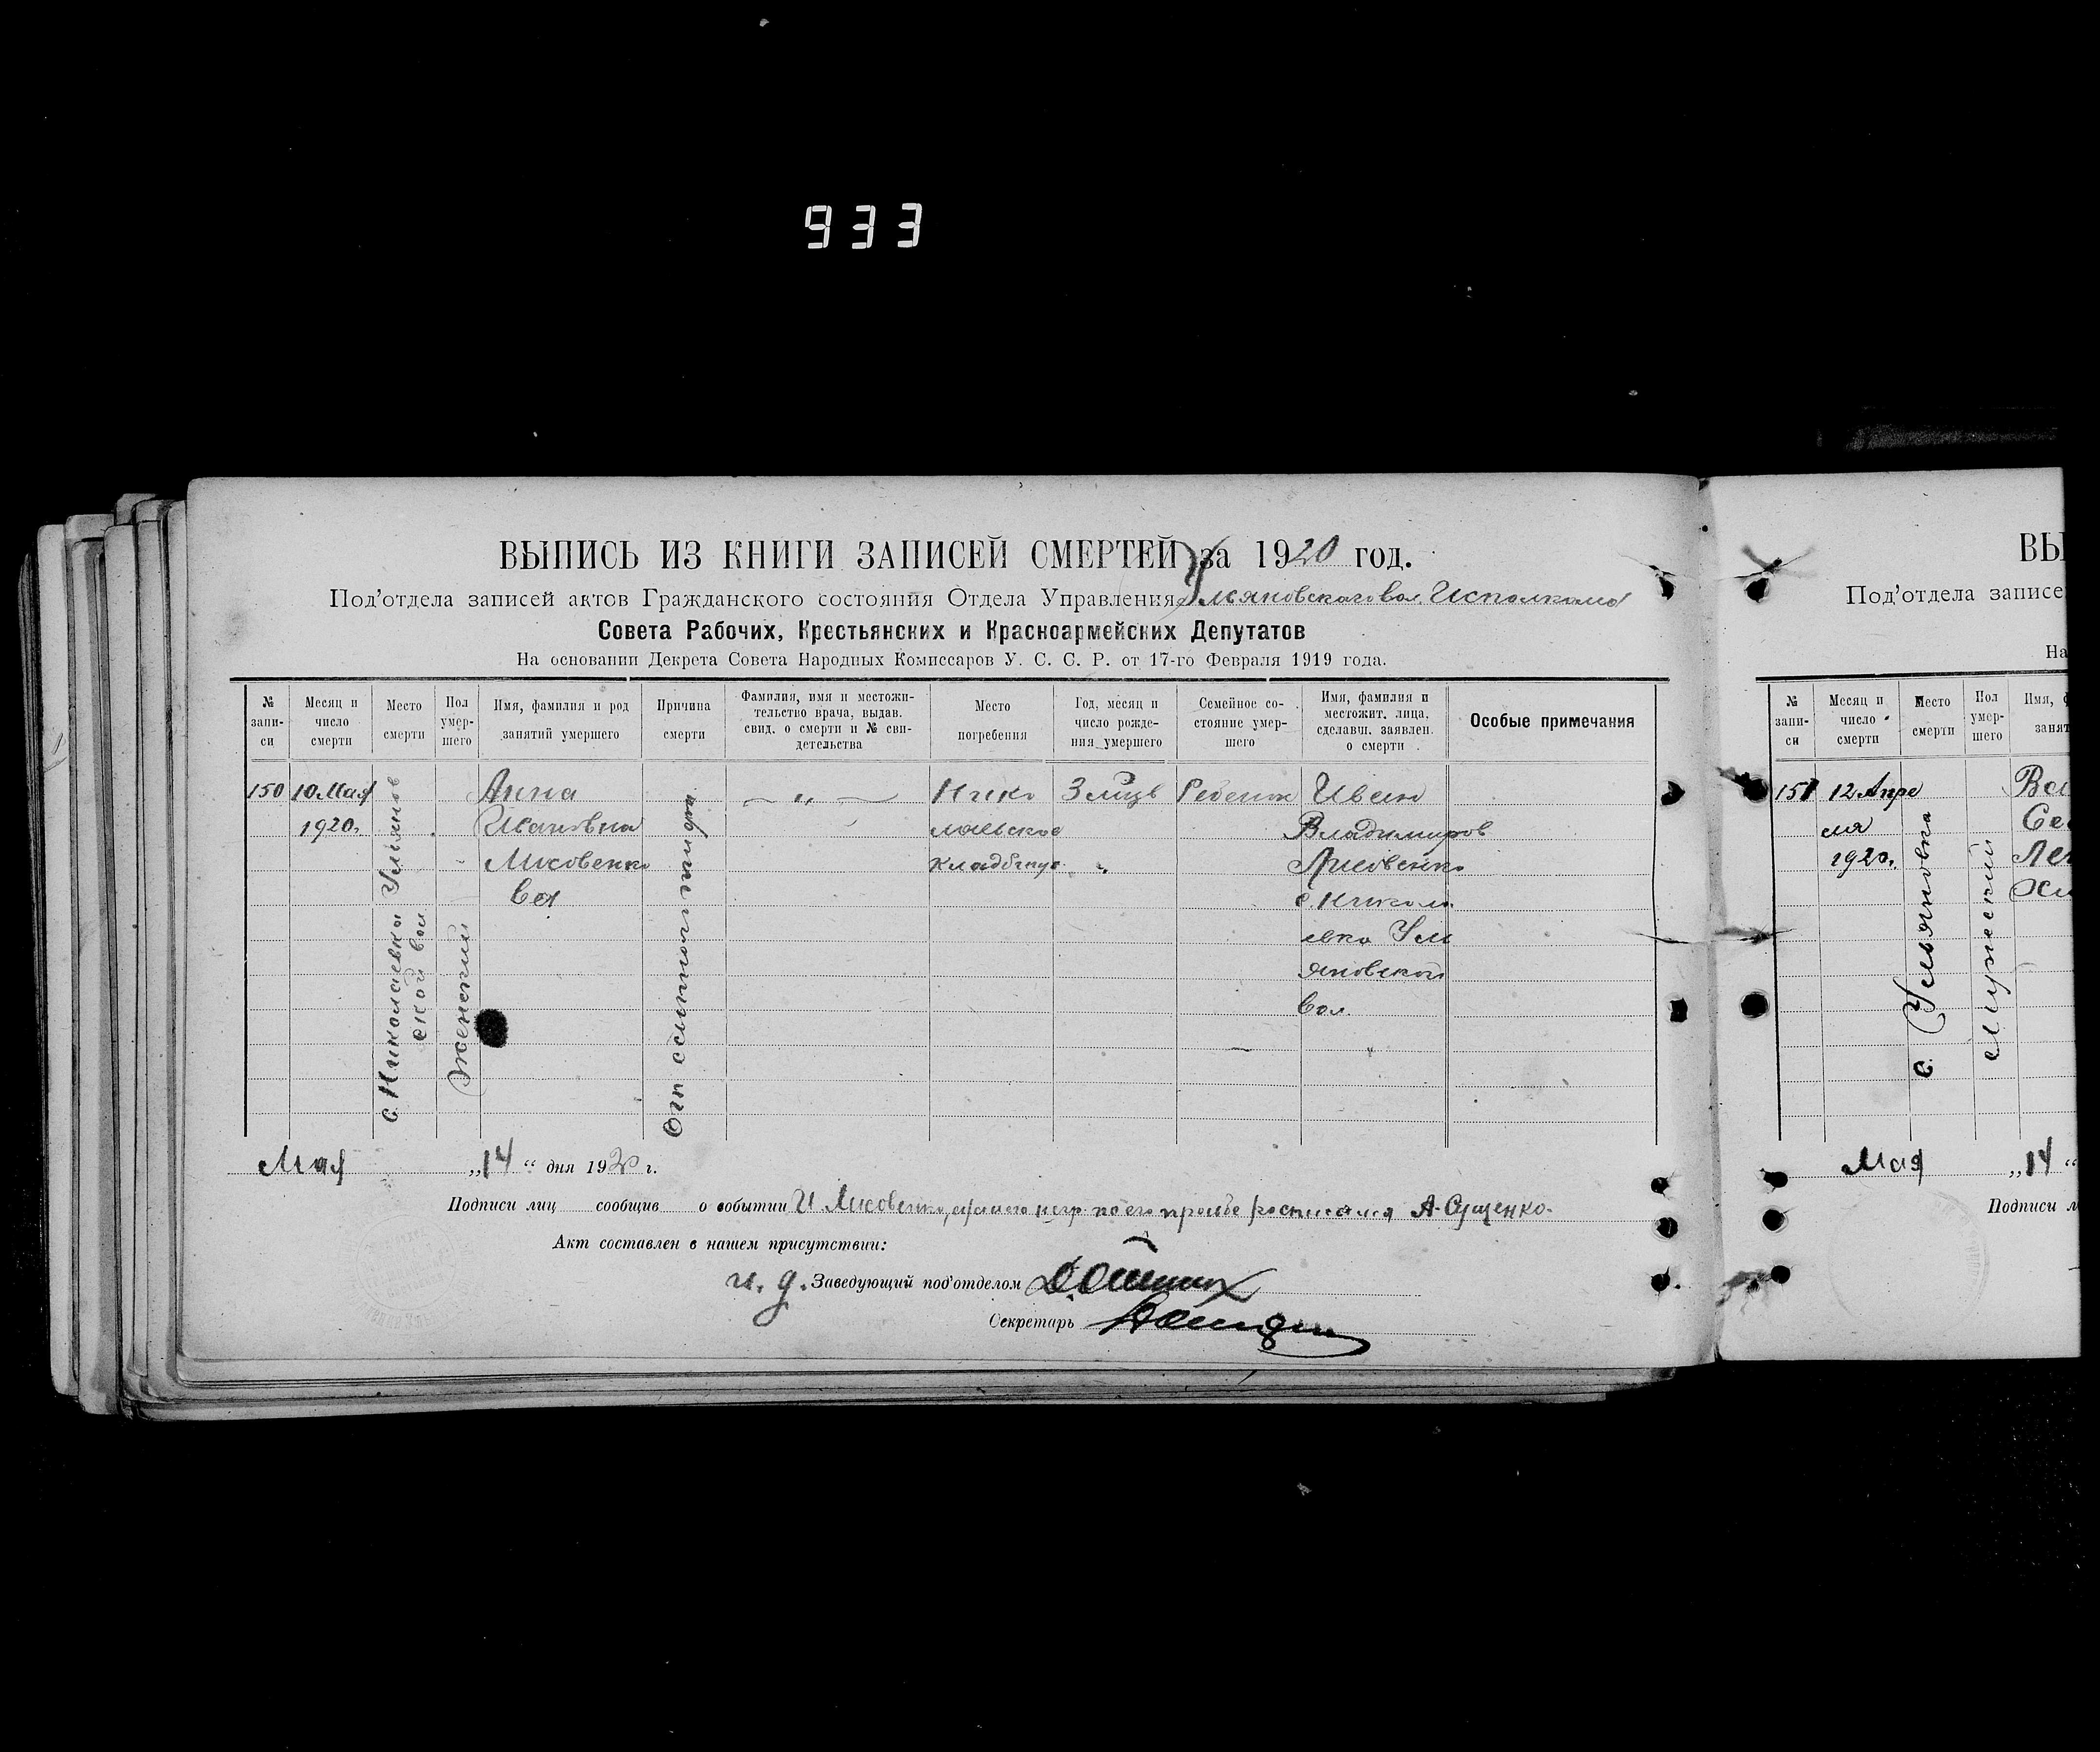 933
ВЫПИСЬ ИЗ КНИГИ ЗАПИСЕЙ СМЕРТЕЙ за 1920 год.
Под'отдела записей актов Гражданского состояния Отдела Управления Ульяновского вол. Исполкома
Совета Рабочих, Крестьянских и Красноармейских Депутатов
На основании Декрета Совета Народных Комиссаров У. С. С. Р. от 17-го Февраля 1919 года.
№ запи-си
Месяц и число смерти
Место смерти
Пол умер-шего
Имя, фамилия и род занятий умершего
Причина смерти
Фамилия, имя и местожи-тельство врача, выдав. свид. о смерти и № сви-детельства
Место погребения
Год, месяц и число рожде-ния умершего
Семейное со-стояние умер-шего
Имя, фамилия и местожит. лица, сделавш. заявлен. о смерти
Особые примечания
150
10 Мая
1920.
с. Николаевка Ульянов
ской вол
Женский
Анна
Ивановна
Лисовенко
ва
От сыпного тифа
— „ —
Нико
лаевское
кладбище
3 мцв
Ребенок
Иван
Владимиров
Лисовенко
с. Никола
евка Уль
яновской
вол.
Мая „14“ дня 1920 г.
Подписи лиц сообщив о событии И Лисовенко, негр по его прозбе росписался А. Сущенко.
Акт составлен в нашем присутствии:
и. д. Заведующий под'отделом
Секретарь
ВЫ
Под'отдела записе
На
№ запи-си
Месяц и число смерти
Место смерти
Пол умер-шего
Имя, ф
занят
151
12 Апре
ля
1920.
с. Ульяновка
Мужеский
Мая „14“
Подписи л